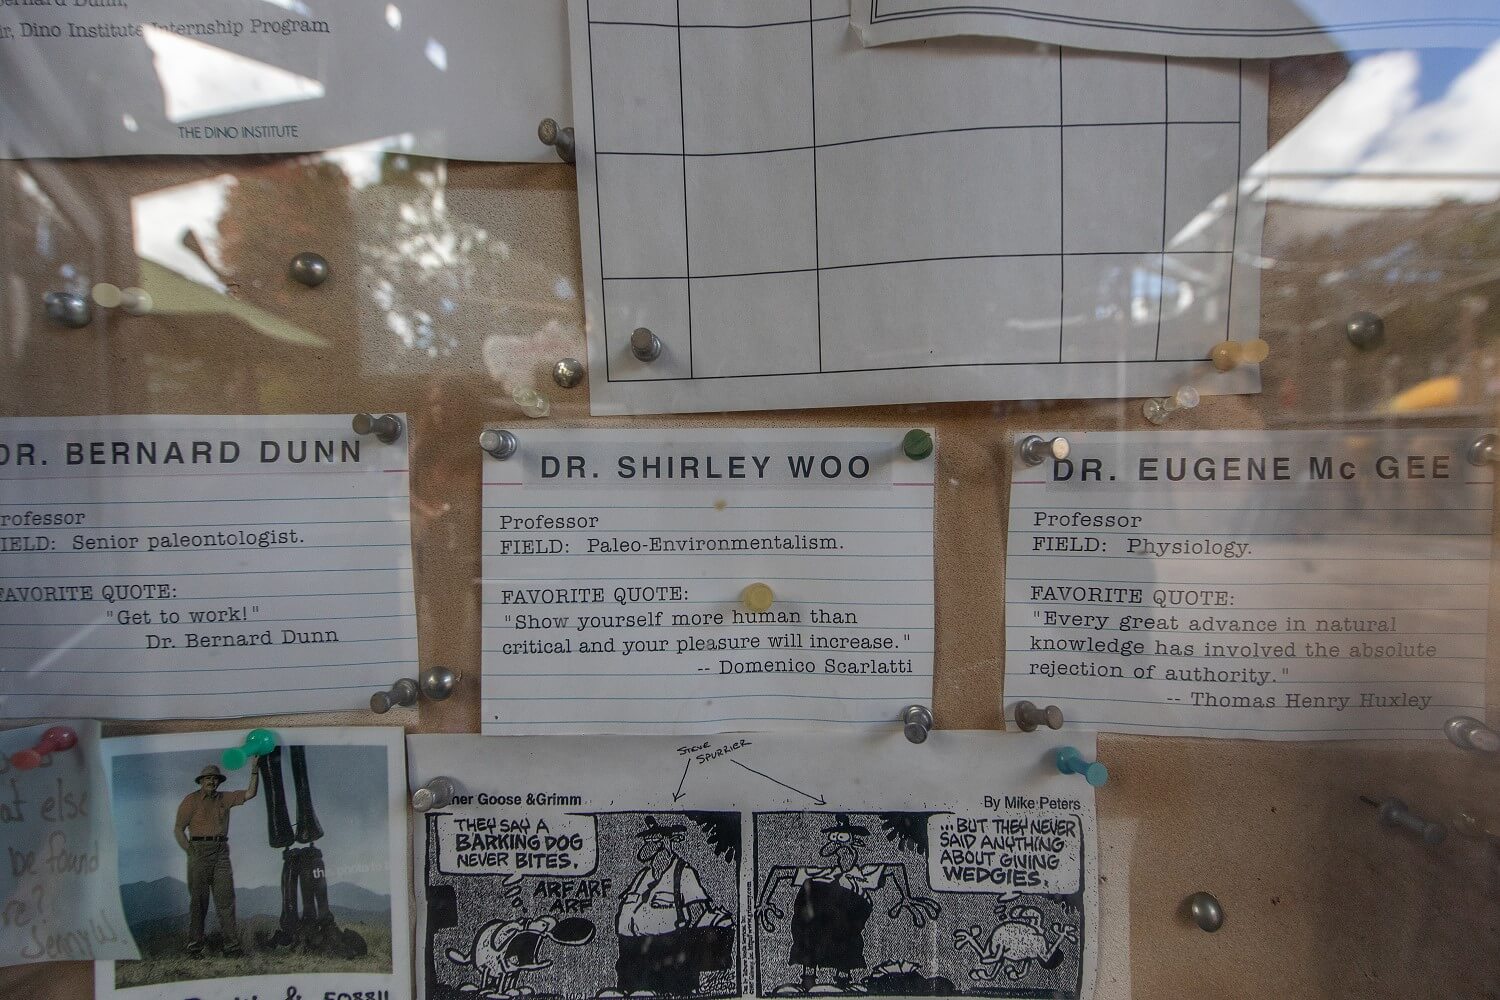 Dunn,
Dino Institute Internship Program
THE DINO INSTITUTE
DR. BERNARD DUNN
rofessor
IELD: Senior paleontologist.
FAVORITE QUOTE:
"Get to work!"
Dr. Bernard Dunn
DR. SHIRLEY WOO
Professor
FIELD: Paleo-Environmentalism.
FAVORITE QUOTE:
"Show yourself more human than
critical and your pleasure will increase."
-- Domenico Scarlatti
DR. EUGENE Mc GEE
Professor
FIELD: Physiology.
FAVORITE QUOTE:
"Every great advance in natural
knowledge has involved the absolute
rejection of authority."
-- Thomas Henry Huxley
else
be found
re?
Jenny W.
this photo to
& FOSSIL
STEVE
SPURRIER
her Goose & Grimm
By Mike Peters
THEY SAY A
BARKING DOG
NEVER BITES.
ARF ARF
ARF
...BUT THEY NEVER
SAID ANYTHING
ABOUT GIVING
WEDGIES.